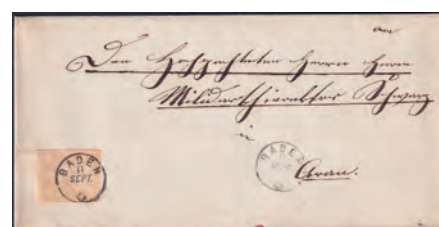 an
Den Hochgeachteten Herrn Herrn
Militärthierarzt Schwarz
in
Arau.
BADEN
11
SEPT.
BADEN